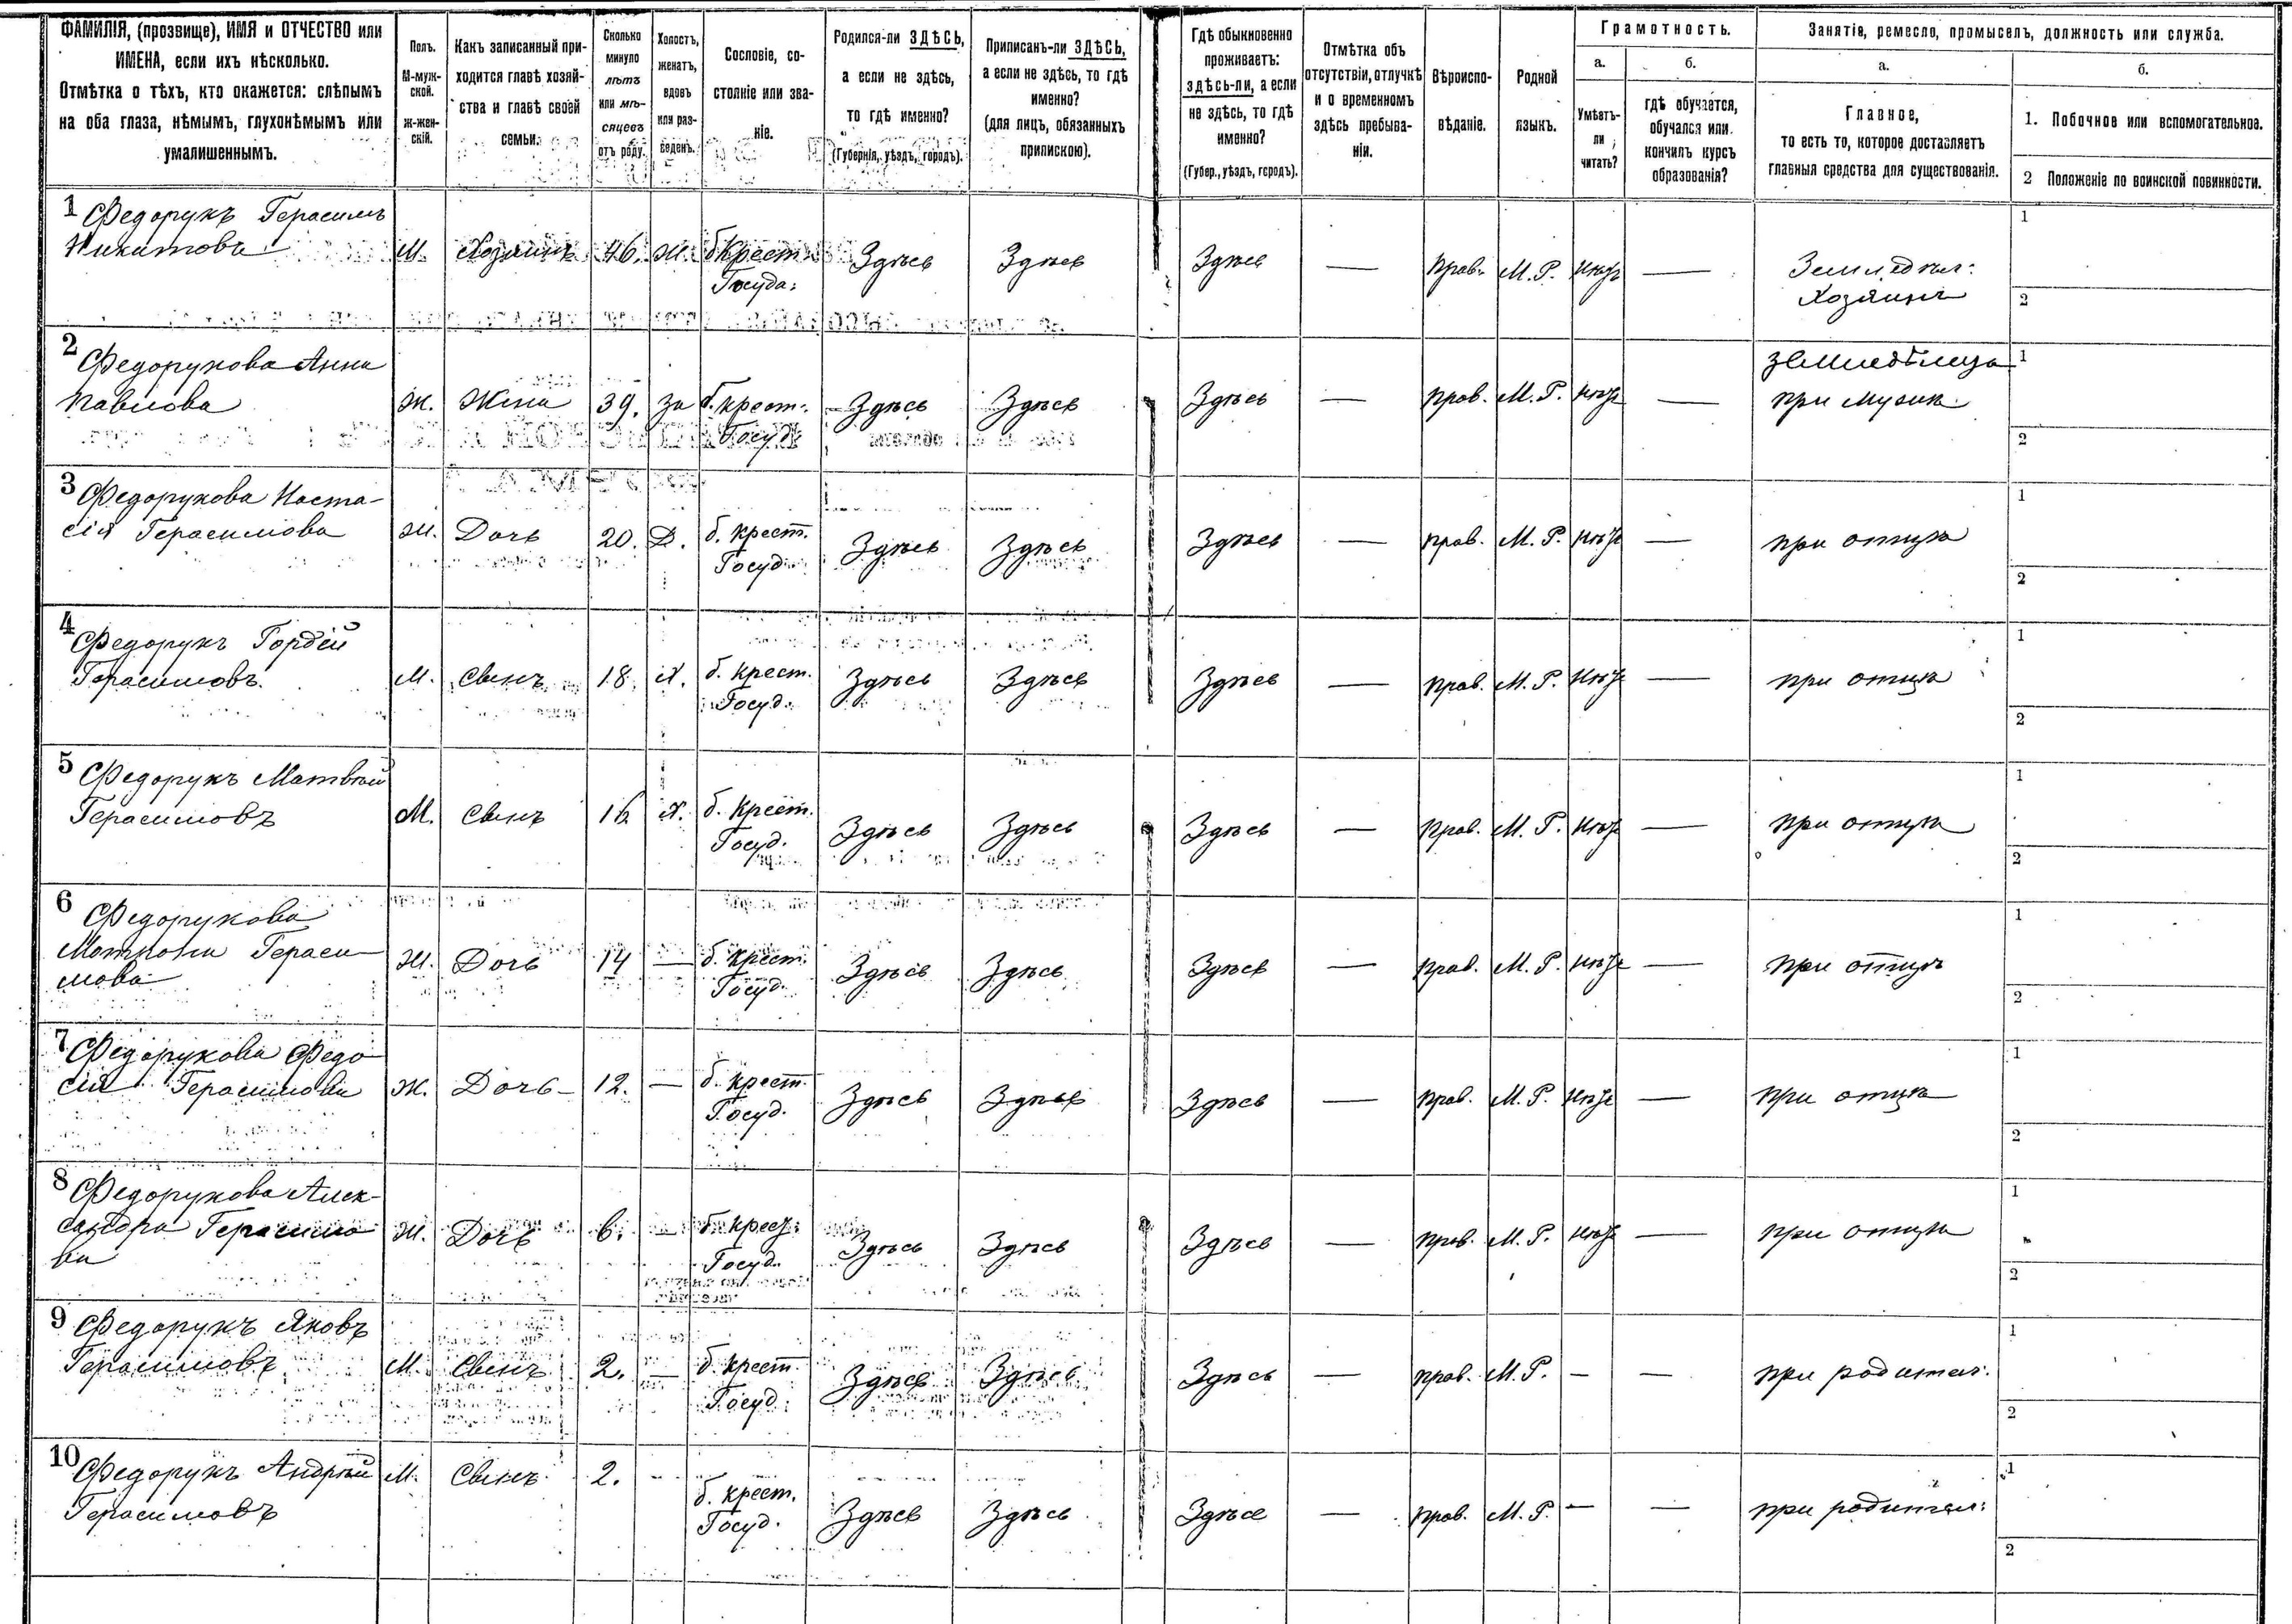 ФАМИЛІЯ, (прозвище), ИМЯ и ОТЧЕСТВО или
ИМЕНА, если ихъ нѣсколько.
Отмѣтка о тѣхъ, кто окажется: слѣпымъ
на оба глаза, нѣмымъ, глухонѣмымъ или
умалишеннымъ.
Полъ.
М-муж-
ской.
ж-жен-
скій.
Какъ записанный при-
ходится главѣ хозяй-
ства и главѣ своей
семьи.
Сколько
минуло
лѣтъ
или мѣ-
сяцевъ
отъ роду.
Холостъ,
женатъ,
вдовъ
или раз-
веденъ.
Сословіе, со-
стояніе или зва-
ніе.
Родился-ли ЗДѢСЬ,
а если не здѣсь,
то гдѣ именно?
(Губернія, уѣздъ, городъ).
Приписанъ-ли ЗДѢСЬ,
а если не здѣсь, то гдѣ
именно?
(для лицъ, обязанныхъ
припискою).
Гдѣ обыкновенно
проживаетъ:
здѣсь-ли, а если
не здѣсь, то гдѣ
именно?
(Губер., уѣздъ, городъ).
Отмѣтка объ
отсутствіи, отлучкѣ
и о временномъ
здѣсь пребыва-
ніи.
Вѣроиспо-
вѣданіе.
Родной
языкъ.
Грамотность.
а.
Умѣетъ-
ли
читать?
б.
гдѣ обучается,
обучался или
кончилъ курсъ
образованія?
Занятія, ремесло, промыселъ, должность или служба.
а.
Главное,
то есть то, которое доставляетъ
главныя средства для существованія.
б.
1. Побочное или вспомогательное.
2 Положеніе по воинской повинности.
1 Федорукъ Герасимъ
Никитовъ М. Хозяинъ 46. Ж. б. Крест. Здѣсь Здѣсь Здѣсь — Прав. М. Р. Нѣтъ — Земледѣл: 1
Госуда: Хозяинъ 2
2 Федорукова Анна Земледѣлица 1
Павлова Ж. Жена 39. За б. крест. Здѣсь Здѣсь Здѣсь — Прав. М. Р. Нѣтъ — при
Госуд. 2
3 Федорукова Наста- 1
сія Герасимова Ж. Дочь 20. Д. б. крест. Здѣсь Здѣсь Здѣсь — прав. М. Р. Нѣтъ — при отцѣ
Госуд. 2
4 Федорукъ Гордѣй 1
Герасимовъ. М. Сынъ 18. Х. б. крест. Здѣсь Здѣсь Здѣсь — прав. М. Р. Нѣтъ — при отцѣ
Госуд. 2
5 Федорукъ Матвѣй 1
Герасимовъ М. Сынъ 16 Х. б. Крест. Здѣсь Здѣсь Здѣсь — прав. М. Р. Нѣтъ — при отцѣ
Госуд. 2
6 Федорукова 1
Матрона Гераси- Ж. Дочь 14 — б. крест. Здѣсь Здѣсь Здѣсь — прав. М. Р. Нѣтъ — при отцѣ
мова Госуд. 2
7 Федорукова Федо 1
сія Герасимова Ж. Дочь 12. — б. крест. Здѣсь Здѣсь Здѣсь — прав. М. Р. Нѣтъ — при отцѣ
Госуд. 2
8 Федорукова Алек- 1
сандра Герасимо Ж. Дочь 6. — б. крест. Здѣсь Здѣсь Здѣсь — прав. М. Р. Нѣтъ — при отцѣ
ва Госуд. 2
9 Федорукъ Яковъ 1
Герасимовъ М. Сынъ 2. — б. крест. Здѣсь Здѣсь Здѣсь — прав. М. Р. — — при родител:
Госуд. 2
10 Федорукъ Андрѣй М. Сынъ 2. - 1
Герасимовъ б. крест. Здѣсь Здѣсь Здѣсь — прав. М. Р. — — при родител:
Госуд. 2